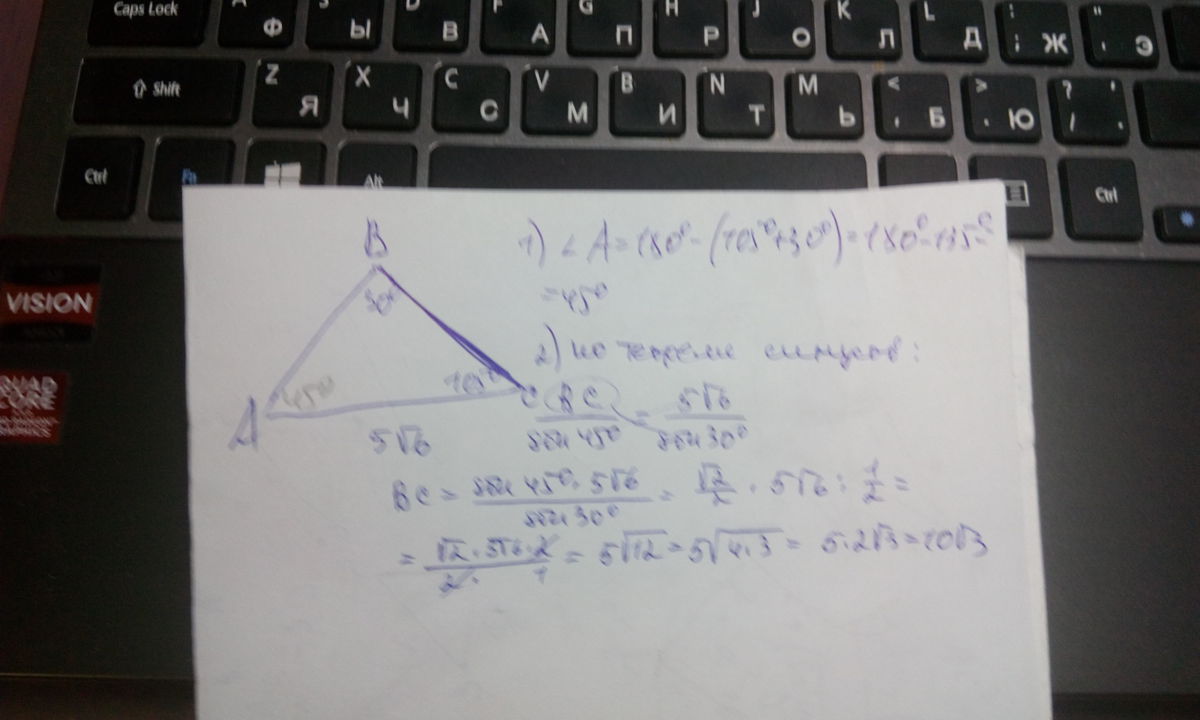 Caps Lock Ф Ы В А G П H Р J О K Л L Д : ; Ж " ' Э
Shift Z Я X Ч C С V М B И N Т M Ь < , Б > . Ю ? / . 
Ctrl Fn Alt Ctrl
VISION
QUAD
CORE
B
30°
A
45°
105°
C
5√6
1) ∠A=180°-(105°+30°)=180°-135°=
=45°
2) по теореме синусов:
BC/sin 45° = 5√6/sin 30°
BC = sin 45° · 5√6/sin 30° = √2/2 · 5√6 : 1/2 =
= √2 · 5√6 · 2/2 · 1 = 5√12 = 5√4·3 = 5·2√3=10√3